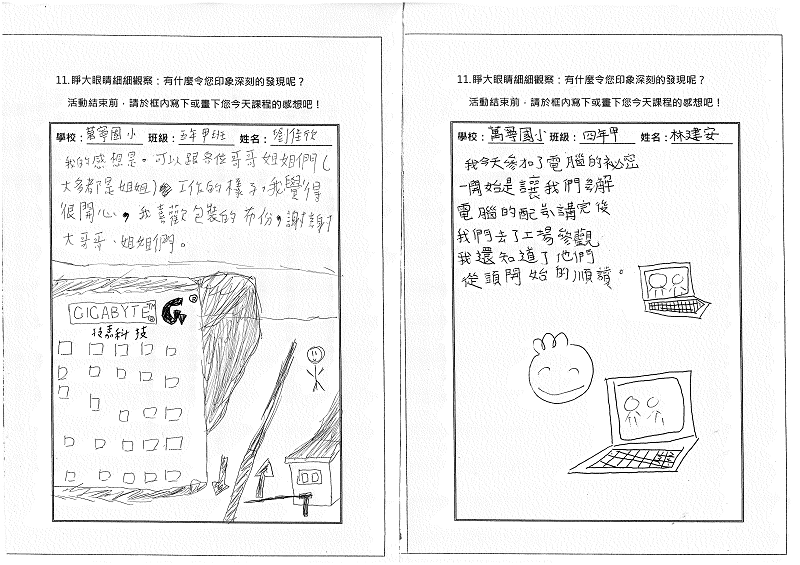 11.睜大眼睛細細觀察：有什麼令您印象深刻的發現呢？
活動結束前，請於框內寫下或畫下您今天課程的感想吧！
學校：萬華國小 班級：五年甲班 姓名：劉佳欣
我的感想是。可以跟各位哥哥姐姐們(
大多都是姐姐) 工作的樣子,我覺得
很開心，我喜歡包裝的部份，謝謝
大哥哥、姐姐們。
GIGABYTE TM
技嘉科技
11.睜大眼睛細細觀察：有什麼令您印象深刻的發現呢？
活動結束前，請於框內寫下或畫下您今天課程的感想吧！
學校：萬華國小 班級：四年甲 姓名：林建安
我今天參加了電腦的祕密
一開始是讓我們了解
電腦的配氣講完後
我們去了工場參觀
我還知道了他們
從頭開始的順讀。